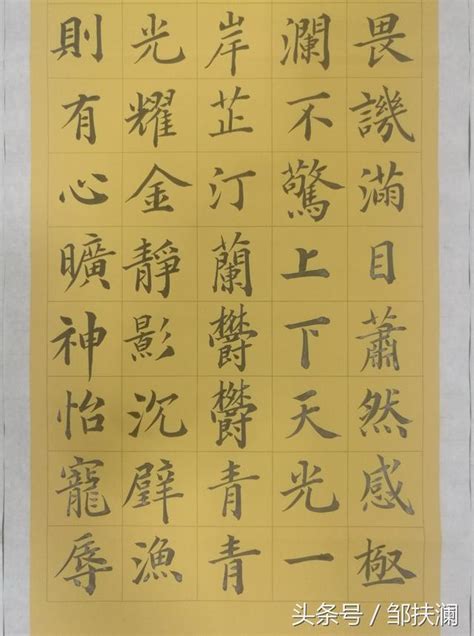 畏譏滿目蕭然感極
瀾不驚上下天光一
岸芷汀蘭鬱鬱青青
光耀金靜影沉璧漁
則有心曠神怡寵辱
头条号／邹扶澜